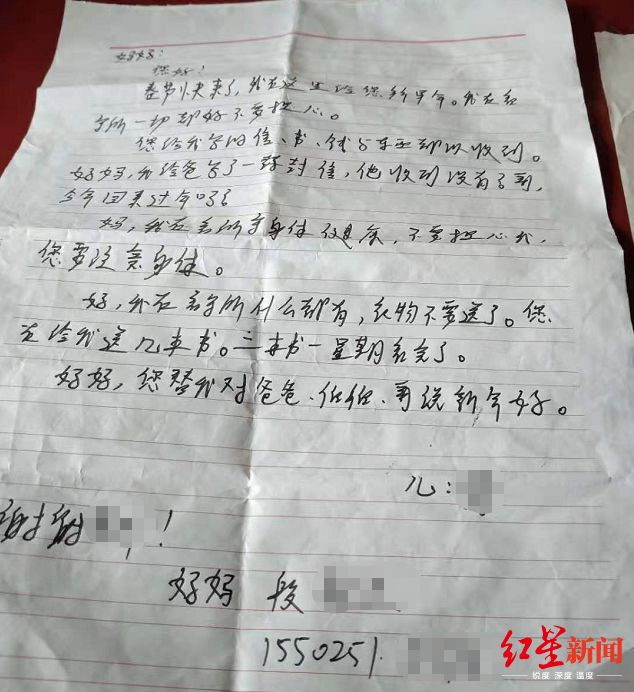 妈妈：
您好！
春节快来了，我在这里给您拜早年。我在看
守所一切都好不要担心。
您给我写的信、书、钱与东西都以收到。
妈妈，我给爸写了一封信，他收到没有了哥，
今年回来过年吗？
妈，我在看所守身体健康，不要担心我，
您要注意身体。
妈，我在看守所什么都有，衣物不要送了。您
在给我送几本书。三本书一星期看完了。
妈妈，您替我对爸爸、伯伯、哥说新年好。
儿：
谢谢！
妈妈 段
1550251
红星新闻
锐度 深度 温度